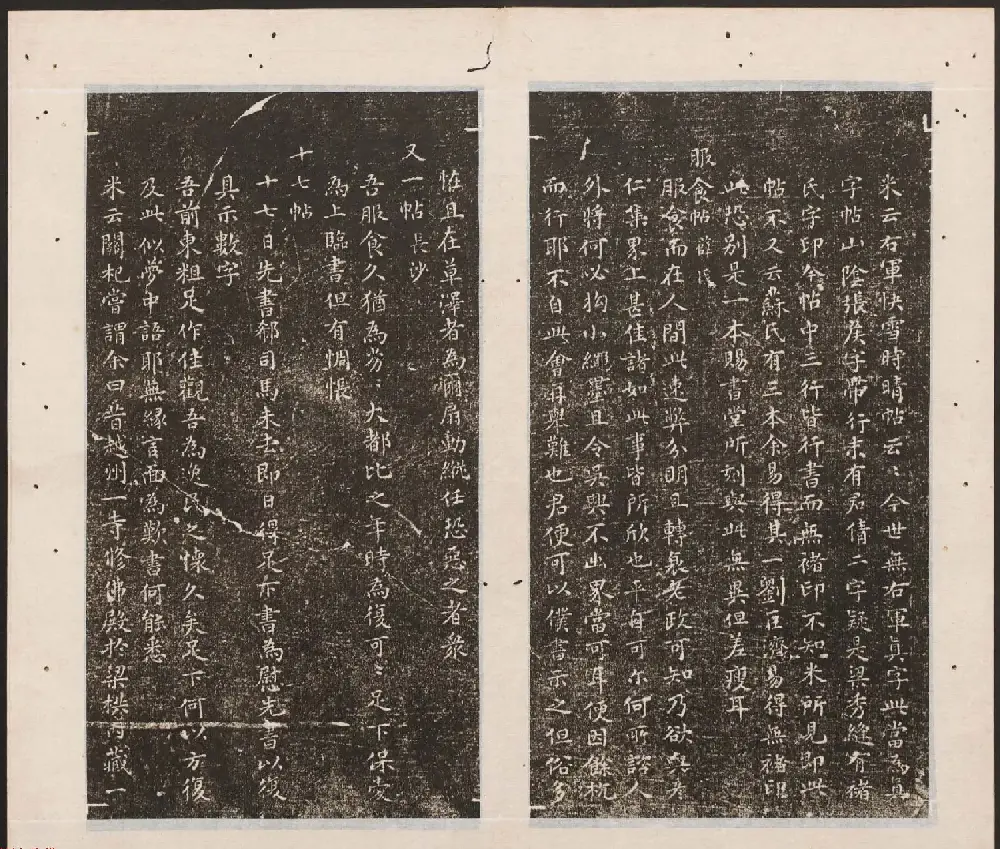 米云右軍快雪時晴帖云〻今世無右軍真字此當為真
字帖山陰張侯字帶行末有君倩二字疑是梁秀縫有褚
氏字印今帖中三行皆行書而無褚印不知米所見即此
帖不又云蘇氏有三本余易得其一劉巨濟易得無褚印
此恐别是一本賜書堂所刻與此無異但差瘦耳
服食帖
服食而在人間此速弊分明且轉衰老政可知乃欲與彦
仁集界上甚佳諸如此事皆所欣也平自可尓何所諮人
外將何必拘小繩墨且令吳興不出界當可耳便因餘杭
而行耶不自此會再舉難也君便可以僕書示之但俗多
怪且在草澤者為爾扇動縱任恐惡之者衆
又一帖 長沙
吾服食久猶為劣〻大都比之年時為復可〻足下保愛
為上臨書但有惆悵
十七帖
十七日先書郗司馬未去即日得足下書為慰先書以復
具示數字
吾前東粗足作佳觀吾為逸民之懷久矣足下何以方復
及此似夢中語耶無緣言面為歎書何能悉
米云關杞嘗謂余曰昔越州一寺修佛殿於梁栱内藏一